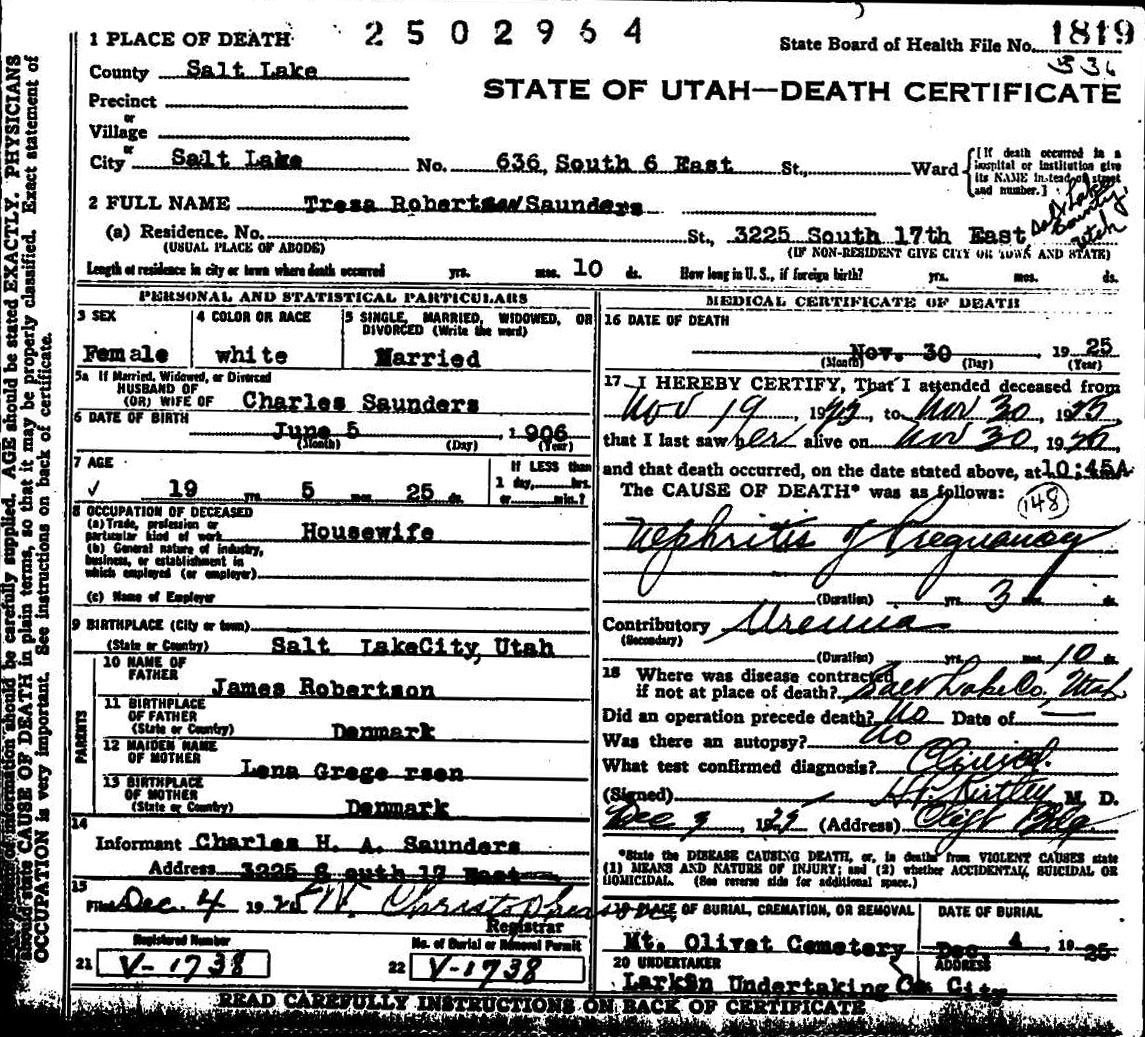 2502964
1 PLACE OF DEATH
State Board of Health File No. 1819
336
County Salt Lake
STATE OF UTAH—DEATH CERTIFICATE
Precinct
or
Village
or
City Salt Lake No. 636, South 6 East St., Ward
[If death occurred in a hospital or institution give its NAME instead of street and number.]
2 FULL NAME Tresa Robertson Saunders
(a) Residence. No. St., 3225 South 17th East Salt Lake County, Utah
(USUAL PLACE OF ABODE) (IF NON-RESIDENT GIVE CITY OR TOWN AND STATE)
Length of residence in city or town where death occurred yrs. mos. 10 ds. How long in U. S., if foreign birth? yrs. mos. ds.
PERSONAL AND STATISTICAL PARTICULARS
3 SEX
Female
4 COLOR OR RACE
white
5 SINGLE, MARRIED, WIDOWED, OR DIVORCED (Write the word)
Married
5a If Married, Widowed, or Divorced
HUSBAND OF
(OR) WIFE OF Charles Saunders
6 DATE OF BIRTH June 5 1906
(Month) (Day) (Year)
7 AGE
✓ 19 yrs. 5 mos. 25 ds.
If LESS than
1 day, hrs.
or min.?
8 OCCUPATION OF DECEASED
(a) Trade, profession or
particular kind of work Housewife
(b) General nature of industry,
business, or establishment in
which employed (or employer)
(c) Name of Employer
9 BIRTHPLACE (City or town)
(State or Country) Salt LakeCity, Utah
PARENTS
10 NAME OF
FATHER
James Robertson
11 BIRTHPLACE
OF FATHER
(State or Country) Denmark
12 MAIDEN NAME
OF MOTHER
Lena Grege rsen
13 BIRTHPLACE
OF MOTHER
(State or Country) Denmark
14
Informant Charles H. A. Saunders
Address 3225 S outh 17 East
15
Filed Dec. 4 1925 W. Christopherson
Registrar
Registered Number
21 V-1738
No. of Burial or Removal Permit
22 V-1738
MEDICAL CERTIFICATE OF DEATH
16 DATE OF DEATH
Nov. 30 19 25
(Month) (Day) (Year)
17 I HEREBY CERTIFY, That I attended deceased from
Nov 19, 1925, to Nov 30, 1925
that I last saw her alive on Nov 30, 1925
and that death occurred, on the date stated above, at 10:45A
The CAUSE OF DEATH* was as follows:
148
Nephritis of Pregnancy
(Duration) yrs. 3 mos. ds.
Contributory Uremia
(Secondary)
(Duration) yrs. mos. 10 ds.
18 Where was disease contracted
if not at place of death? Salt Lake Co, Utah
Did an operation precede death? No Date of —
Was there an autopsy? No
What test confirmed diagnosis? Clinical.
(Signed) H.P. Kirtley M. D.
Dec 3, 1925 (Address) Clift Bldg.
*State the DISEASE CAUSING DEATH, or, in deaths from VIOLENT CAUSES state
(1) MEANS AND NATURE OF INJURY; and (2) whether ACCIDENTAL, SUICIDAL OR
HOMICIDAL. (See reverse side for additional space.)
19 PLACE OF BURIAL, CREMATION, OR REMOVAL
Mt. Olivet Cemetery
DATE OF BURIAL
Dec. 4, 19 25
20 UNDERTAKER
Larkin Undertaking Co
ADDRESS
City
READ CAREFULLY INSTRUCTIONS ON BACK OF CERTIFICATE
information should be carefully supplied. AGE should be stated EXACTLY. PHYSICIANS
should state CAUSE OF DEATH in plain terms, so that it may be properly classified. Exact statement of
OCCUPATION is very important. See instructions on back of certificate.